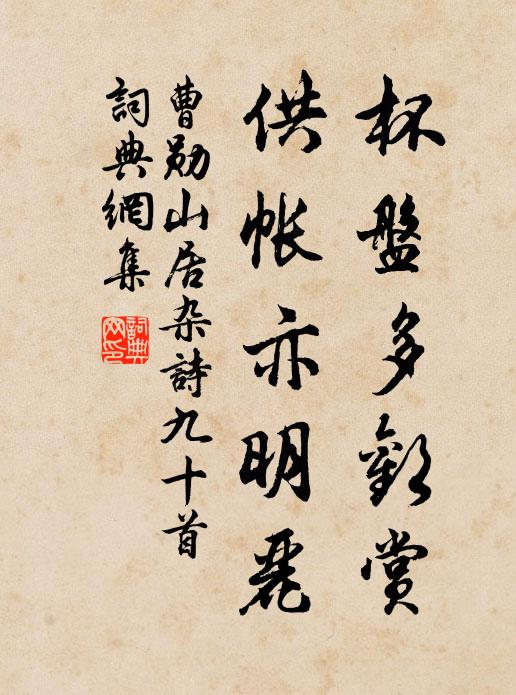 杯盤多歡賞
供帐亦明麗
曹勛山居杂詩九十首
詞典網集
詞典
网印